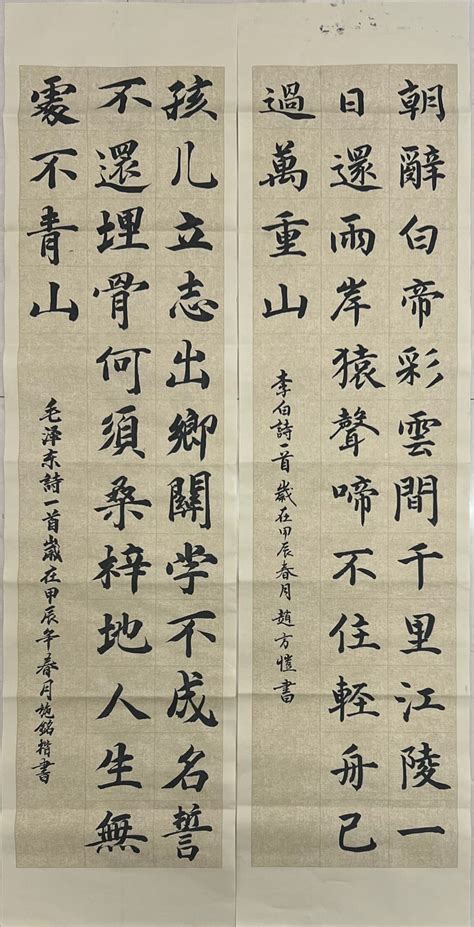 朝辭白帝彩雲間千里江陵一
日還雨岸猿聲啼不住輕舟已
過萬重山
李伯詩一首歲在甲辰春月趙方愷書
孩儿立志出鄉關学不成名誓
不還埋骨何須桑梓地人生無
處不青山
毛泽东詩一首歲在甲辰年春月施銘楷書